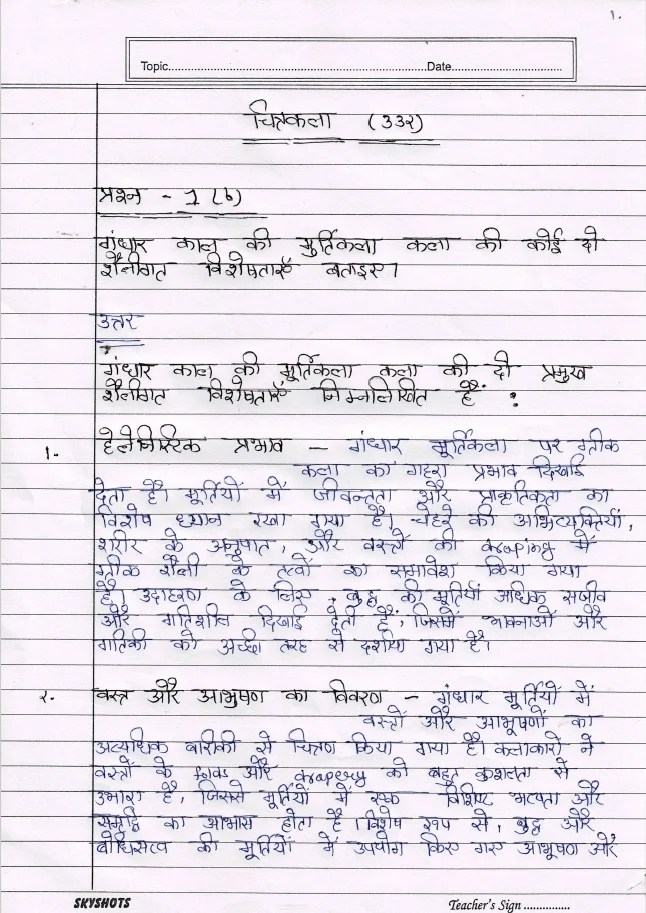 १.
Topic.......................................................Date.......................
चित्रकला (३३२)
प्रश्न - 1 (b)
गंधार काल की मुर्तिकला कला की कोई दो
शैलीगत विशेषताएँ बताइए।
उत्तर
गंधार काल की मूर्तिकला कला की दो प्रमुख
शैलीगत विशेषताएँ निम्नलिखित हैं :
१. हेलेनिस्टिक प्रभाव - गंधार मूर्तिकला पर ग्रीक
कला का गहरा प्रभाव दिखाई
देता है। मूर्तियों में जीवन्तता और प्राकृतिकता का
विशेष ध्यान रखा गया है। चेहरे की अभिव्यक्तियाँ,
शरीर के अनुपात, और वस्त्रों की draping में
ग्रीक शैली के तत्वों का समावेश किया गया
है। उदाहरण के लिए, बुद्ध की मूर्तियाँ अधिक सजीव
और गतिशील दिखाई देती हैं, जिसमें भावनाओं और
गतिकी को अच्छी तरह से दर्शाया गया है।
२. वस्त्र और आभुषण का विवरण - गंधार मूर्तियों में
वस्त्रों और आभूषणों का
अत्यधिक बारीकी से चित्रण किया गया है। कलाकारों ने
वस्त्रों के folds और drapery को बहुत कुशलता से
उभारा है, जिससे मूर्तियों में एक विशिष्ट भव्यता और
समृद्धि का आभास होता है। विशेष रूप से, बुद्ध और
बोधिसत्व की मूर्तियों में उपयोग किए गए आभूषण और
SKYSHOTS
Teacher's Sign ...............